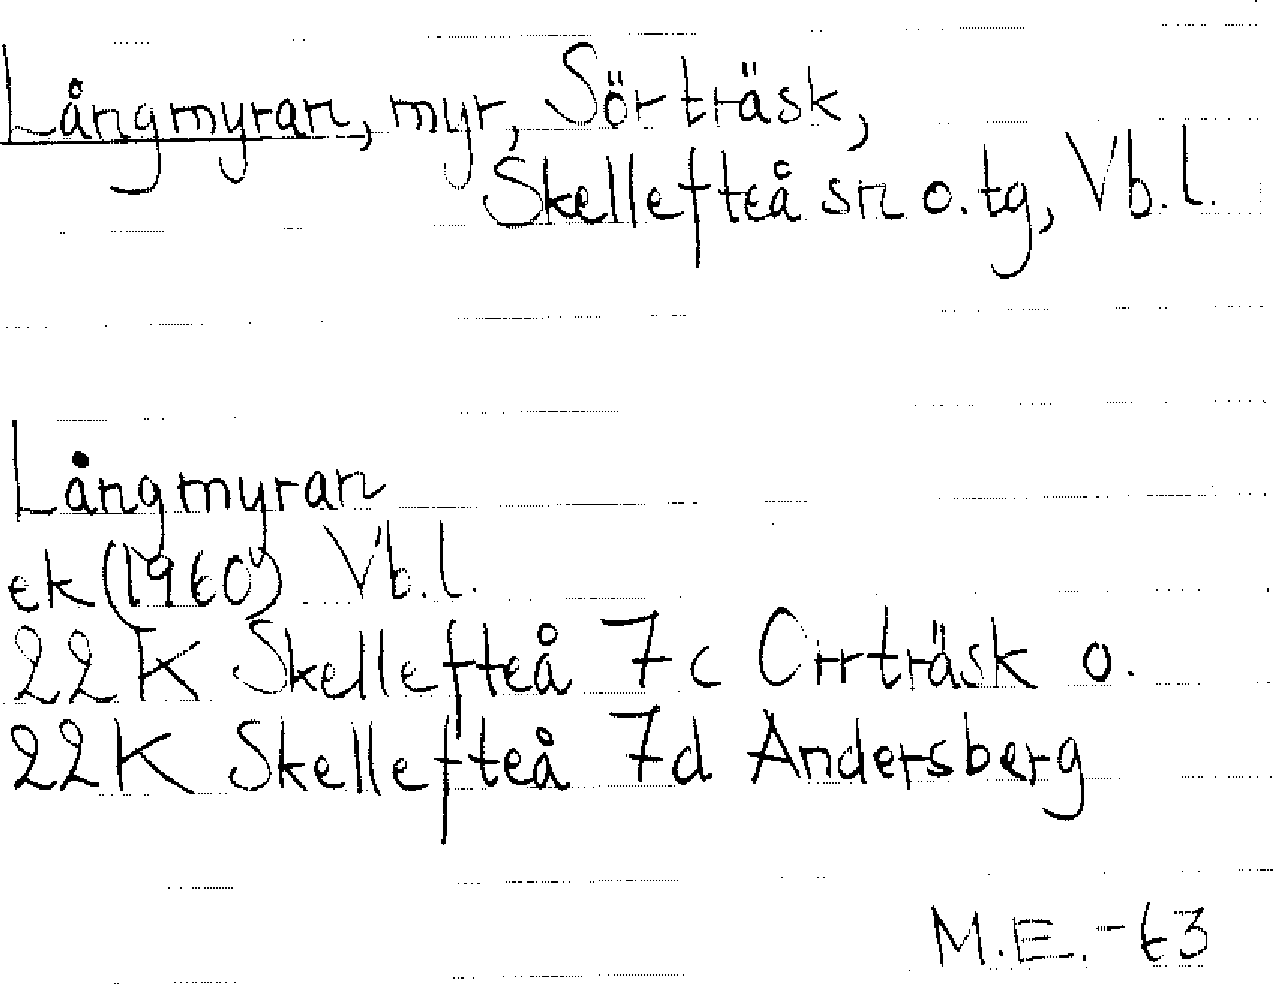 Långmyran, myr, Sörträsk,
Skellefteå sn o. tg, Vb.l.
Långmyran
ek (1960) Vb.l.
22K Skellefteå 7c Orrträsk o.
22K Skellefteå 7d Andersberg
M.E.-63